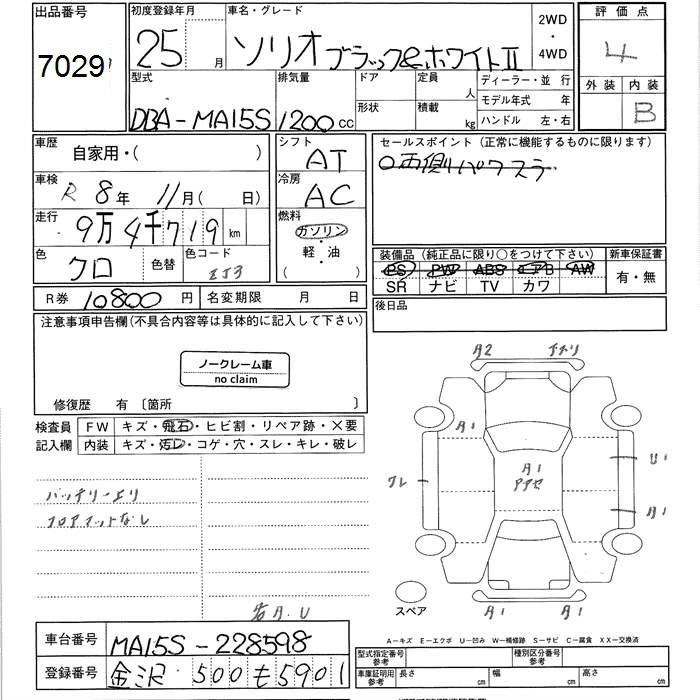 出品番号
7029
初度登録年月
25 月
車名・グレード
ソリオ ブラック&ホワイトⅡ
2WD
・
4WD
評価点
4
外装 内装
B
型式
DBA-MA15S
排気量
1200 cc
ドア
形状
定員
人
積載
kg
ディーラー・並 行
モデル年式 年
ハンドル 左・右
車歴
自家用・( )
車検
R 8年 11月( 日)
走行
9万4千719 km
色
クロ
色替
色コード
ZJ3
シフト
AT
冷房
AC
燃料
ガソリン
・
軽・油
( )
セールスポイント(正常に機能するものに限ります)
○両側パワスラ
装備品(純正品に限り○をつけて下さい)
PS PW ABS エアB AW
SR ナビ TV カワ
新車保証書
有・無
R券 10800 円
名変期限 月 日
後日品
注意事項申告欄(不具合内容等は具体的に記入して下さい)
ノークレーム車
no claim
修復歴 有 〔箇所 〕
検査員
記入欄
FW キズ・飛石・ヒビ割・リペア跡・×要
内装 キズ・汚レ・コゲ・穴・スレ・キレ・破レ
バッテリーヨリ
フロアマットなし
A2
A1
A1
ワレ
U1
A1
A1 A1
スペア
A-キズ E-エクボ U-凹み W-補修跡 S-サビ C-腐食 XX-交換済
車台番号 MA15S-228598
登録番号 金沢 500 も 5901
型式指定番号
参考
種別区分番号
参考
車庫証明用
参考
長さ cm 幅 cm 高さ cm